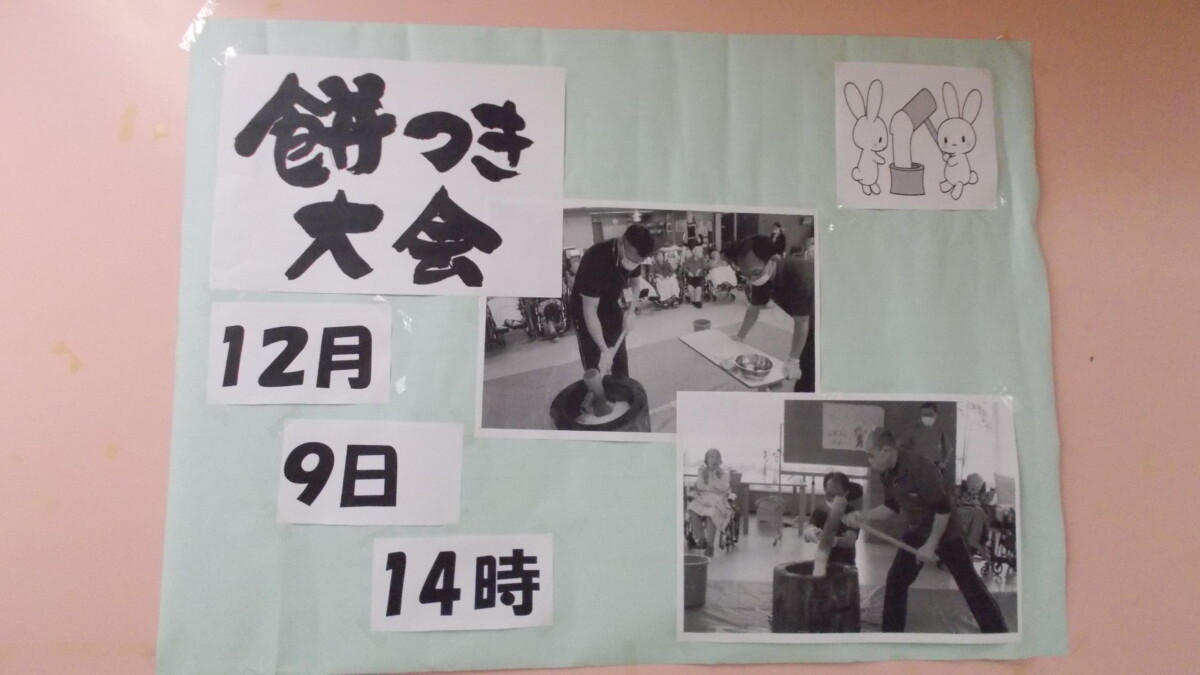 餅つき
大会
12月
9日
14時